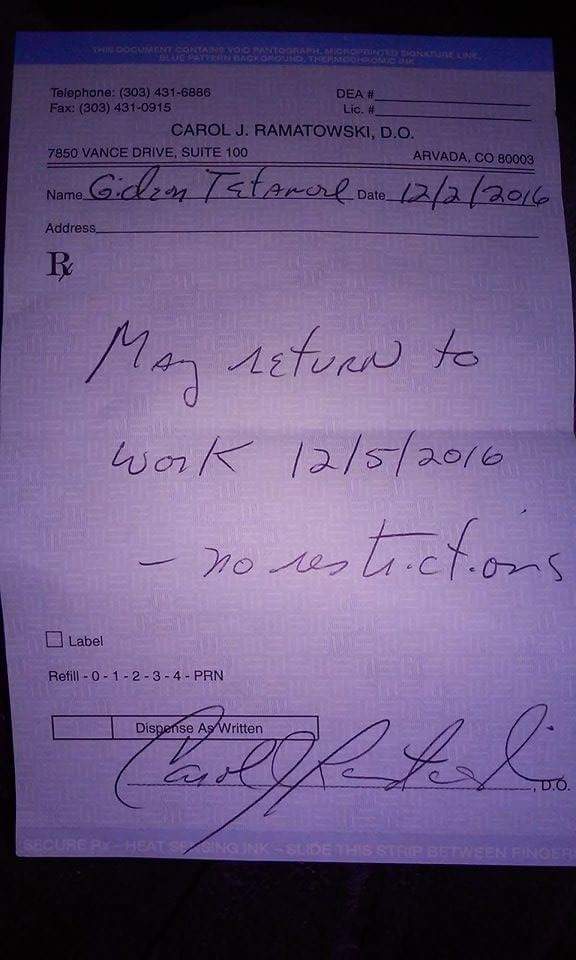 THIS DOCUMENT CONTAINS VOID PANTOGRAPH, MICROPRINTED SIGNATURE LINE,
BLUE PATTERN BACKGROUND, THERMOCHROMIC INK
Telephone: (303) 431-6886 DEA #
Fax: (303) 431-0915 Lic. #
CAROL J. RAMATOWSKI, D.O.
7850 VANCE DRIVE, SUITE 100 ARVADA, CO 80003
Name Gideon Tetamore Date 12/2/2016
Address
Rx
May return to
work 12/5/2016
- no restrictions
Label
Refill - 0 - 1 - 2 - 3 - 4 - PRN
Dispense As Written
Carol J Ramatowski, D.O.
SECURE Rx - HEAT SENSING INK - SLIDE THIS STRIP BETWEEN FINGERS